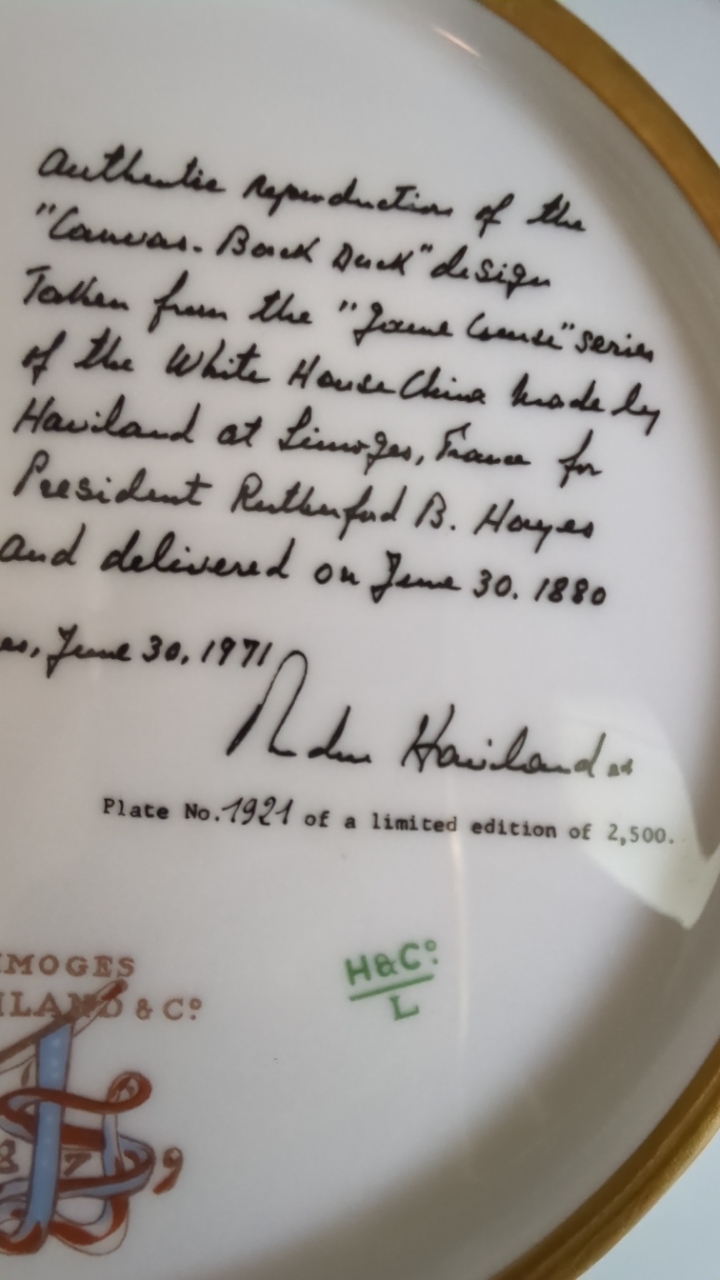 Authentic reproduction of the
"Canvas-Back Duck" design
Taken from the "Game Course" series
of the White House China made by
Haviland at Limoges, France for
President Rutherford B. Hayes
and delivered on June 30. 1880
es, June 30, 1971
Haviland
Plate No. 1921 of a limited edition of 2,500.
H&Cº
L
IMOGES
ILAND & Cº
879